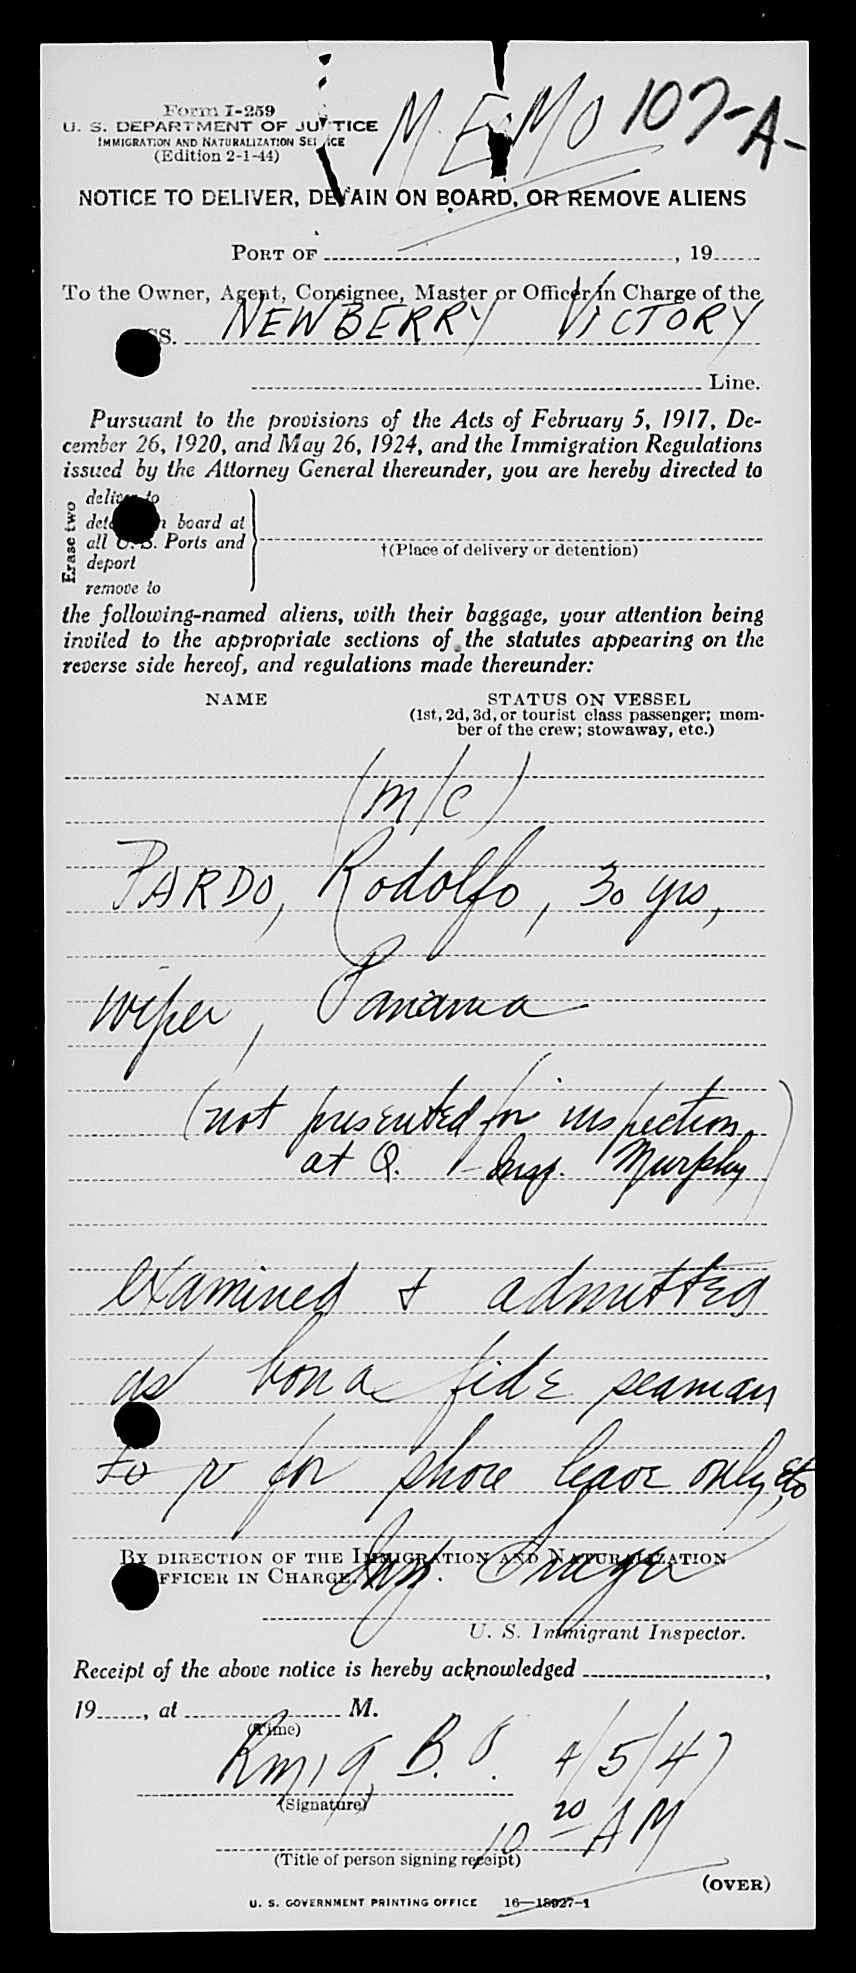 Form I-259
U. S. DEPARTMENT OF JUSTICE
IMMIGRATION AND NATURALIZATION SERVICE
(Edition 2-1-44)
MEMO 107-A-
NOTICE TO DELIVER, DETAIN ON BOARD, OR REMOVE ALIENS
PORT OF , 19
To the Owner, Agent, Consignee, Master or Officer in Charge of the
SS. NEWBERRY VICTORY
Line.
Pursuant to the provisions of the Acts of February 5, 1917, De-
cember 26, 1920, and May 26, 1924, and the Immigration Regulations
issued by the Attorney General thereunder, you are hereby directed to
Erase two
deliver to
detain on board at
all U. S. Ports and
deport
remove to
†(Place of delivery or detention)
the following-named aliens, with their baggage, your attention being
invited to the appropriate sections of the statutes appearing on the
reverse side hereof, and regulations made thereunder:
NAME STATUS ON VESSEL
(1st, 2d, 3d, or tourist class passenger; mem-
ber of the crew; stowaway, etc.)
(m/c)
PARDO, Rodolfo, 30 yrs,
wiper, Panama
(not presented for inspection
at Q. - Insp. Murphy)
examined & admitted
as bona fide seaman
to for shore leave only,
BY DIRECTION OF THE IMMIGRATION AND NATURALIZATION
OFFICER IN CHARGE.
Insp.
U. S. Immigrant Inspector.
Receipt of the above notice is hereby acknowledged ,
19 , at M.
(Time)
Rm 19, B. O. 4/5/47
(Signature)
10 20 AM
(Title of person signing receipt)
(OVER)
U. S. GOVERNMENT PRINTING OFFICE 16—18927-1